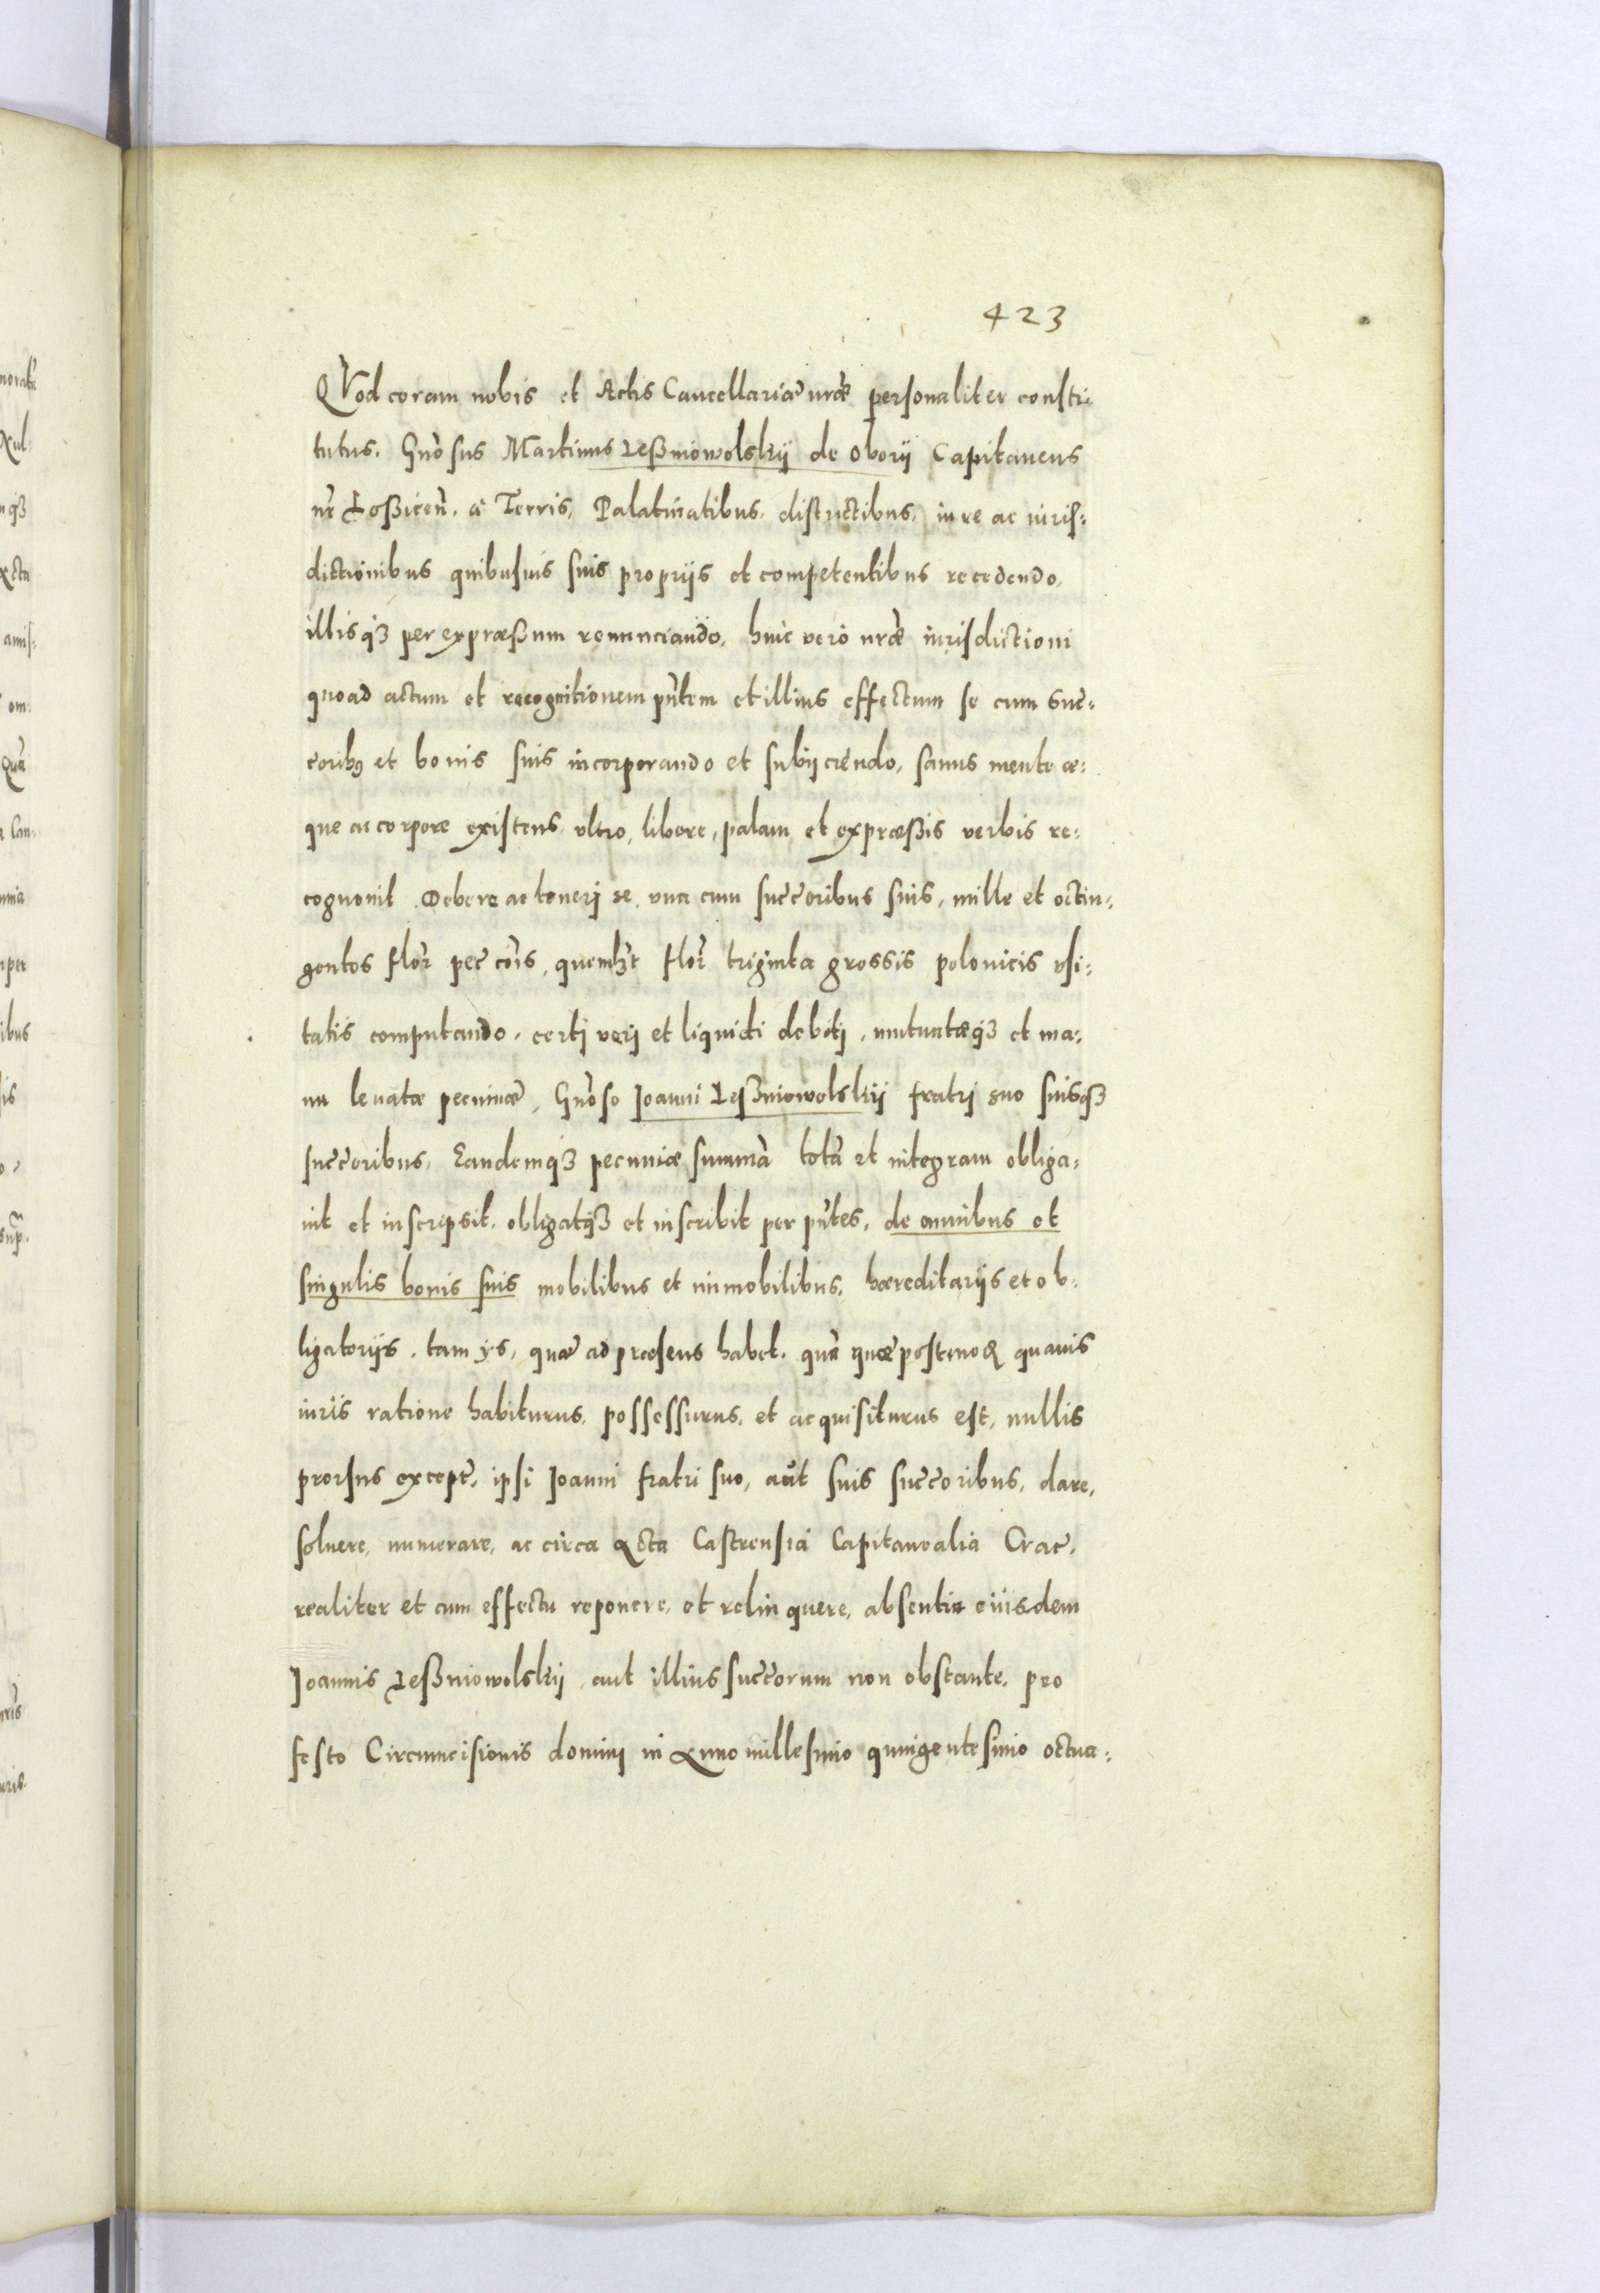 423
QVod coram nobis et Actis Cancellariæ nr̃æ personaliter consti
tutus. Gnõsus Martinus Leßniowolskij de Oborij Capitaneus
nr̃ Loßicen̄. a Terris, Palatinatibus, districtibus, iure ac iuris:
dictionibus quibusuis suis proprijs et competentibus recedendo,
illisqꝫ per expræßum renunciando, huic vero nr̃æ iurisdictioni
quoad actum et recognitionem pñtem et illius effectum se cum suc̄:
coribꝯ et bonis suis incorporando et subijciendo, sanus mente æ:
que ac corpore existens, vltro, libere, palam, et expræßis verbis re:
cognouit. Debere ac tenerj se vna cum suc̄coribus suis, mille et octin:
gentos flor̄ pec̄ cõis, quemlꝫt flor̄ triginta grossis polonicis vsi:
tatis computando, certj verj et liquidi debitj, mutuatæqꝫ et ma:
nu leuatæ pecuniæ, Gnõso Joanni Leßniowolskij fratrj suo suisqꝫ
suc̄coribus, Eandemqꝫ pecuniæ summã totã et integram obliga:
uit et inscripsit, obligatqꝫ et inscribit per pñtes, de omnibus et
singulis bonis suis mobilibus et immobilibus, hæreditarijs et ob:
ligatorijs, tam ijs, quæ ad præsens habet, quã quæ postmoꝺ quauis
iuris ratione habiturus, possessurus, et acquisiturus est, nullis
prorsus except̄, ipsi Joanni fratri suo, aut suis suc̄coribus, dare,
soluere, numerare, ac circa Acta Castrensia Capitanealia Crac̄,
realiter et cum effectu reponere, et relinquere, absentia eiusdem
Joannis Leßniowolskij, aut illius suc̄corum non obstante, pro
festo Circumcisionis dominj in Anno millesimo quingentesimo octua: